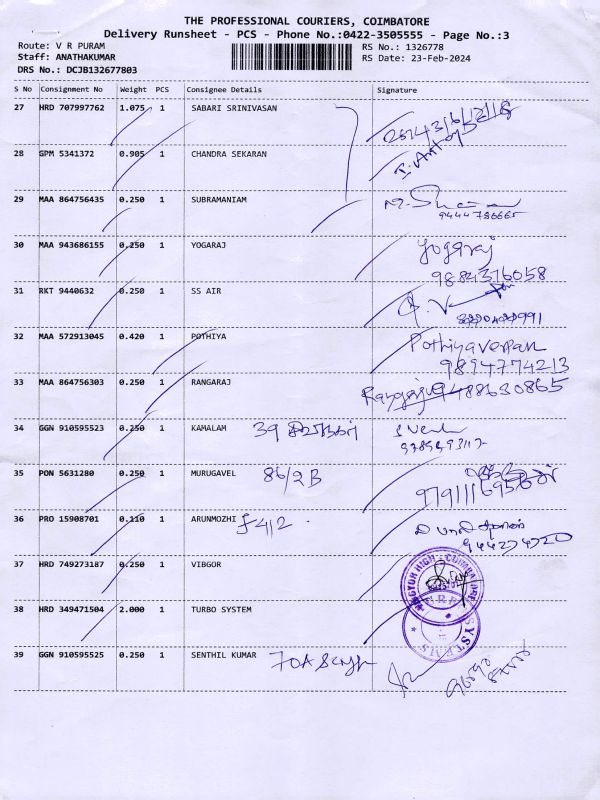 THE PROFESSIONAL COURIERS, COIMBATORE
Delivery Runsheet - PCS - Phone No.:0422-3505555 - Page No.:3
Route: V R PURAM
RS No.: 1326778
Staff: ANATHAKUMAR
RS Date: 23-Feb-2024
DRS No.: DCJB132677803
S No Consignment No Weight PCS Consignee Details Signature
27 HRD 707997762 1.075 1 SABARI SRINIVASAN
28 GPM 5341372 0.905 1 CHANDRA SEKARAN
29 MAA 864756435 0.250 1 SUBRAMANIAM
30 MAA 943686155 0.250 1 YOGARAJ Yogaraj
9884376058
31 RKT 9440632 0.250 1 SS AIR
32 MAA 572913045 0.420 1 POTHIYA
9894774213
33 MAA 864756303 0.250 1 RANGARAJ
34 GGN 910595523 0.250 1 KAMALAM 39
35 PON 5631280 0.250 1 MURUGAVEL 86/2B
36 PRO 15908701 0.110 1 ARUNMOZHI F4/2
37 HRD 749273187 0.250 1 VIBGOR
38 HRD 349471504 2.000 1 TURBO SYSTEM
SYSTEMS
39 GGN 910595525 0.250 1 SENTHIL KUMAR 70A